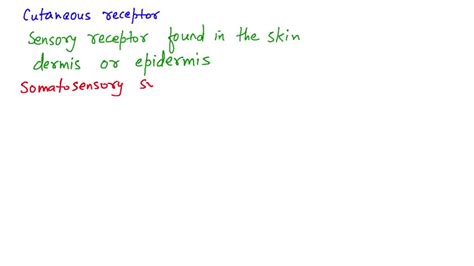 Cutaneous receptor
Sensory receptor found in the skin
dermis or epidermis
Somatosensory s